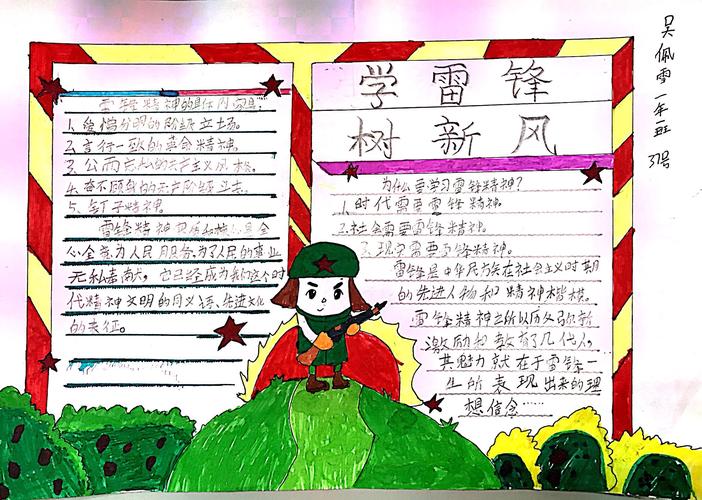 雷锋精神的具体内容是:
1.爱憎分明的阶级立场。
2.言行一致的革命精神。
3.公而忘私的共产主义风格。
4.奋不顾身的无产阶级斗志。
5.钉子精神。
雷锋精神
全心全意为人民服务,为了人民的事业
无私奉献,它已经成为我们这个时
代精神文明的同义语、先进文化
的表征。
学雷锋
树新风
为什么要学习雷锋精神?
1.时代需要雷锋精神。
2.社会需要雷锋精神。
3.现实需要雷锋精神。
雷锋是中华民族在社会主义时期
的先进人物和精神楷模。
雷锋精神之所以历久弥新
激励和教育了几代人,
其魅力就在于雷锋一
生所表现出来的理
想信念……
吴佩雪一年一班
37号